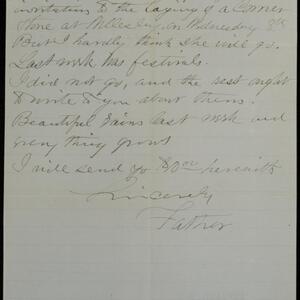 invitation to the laying of a Corner
Stone at Wellesley on Wednesday 8th
But I hardly think she will go.
Last week was festivals.
I did not go, and the rest ought
to write to you about them.
Beautiful rains last week and
every thing grows
I will send you $30 00 herewith
Sincerely
Father